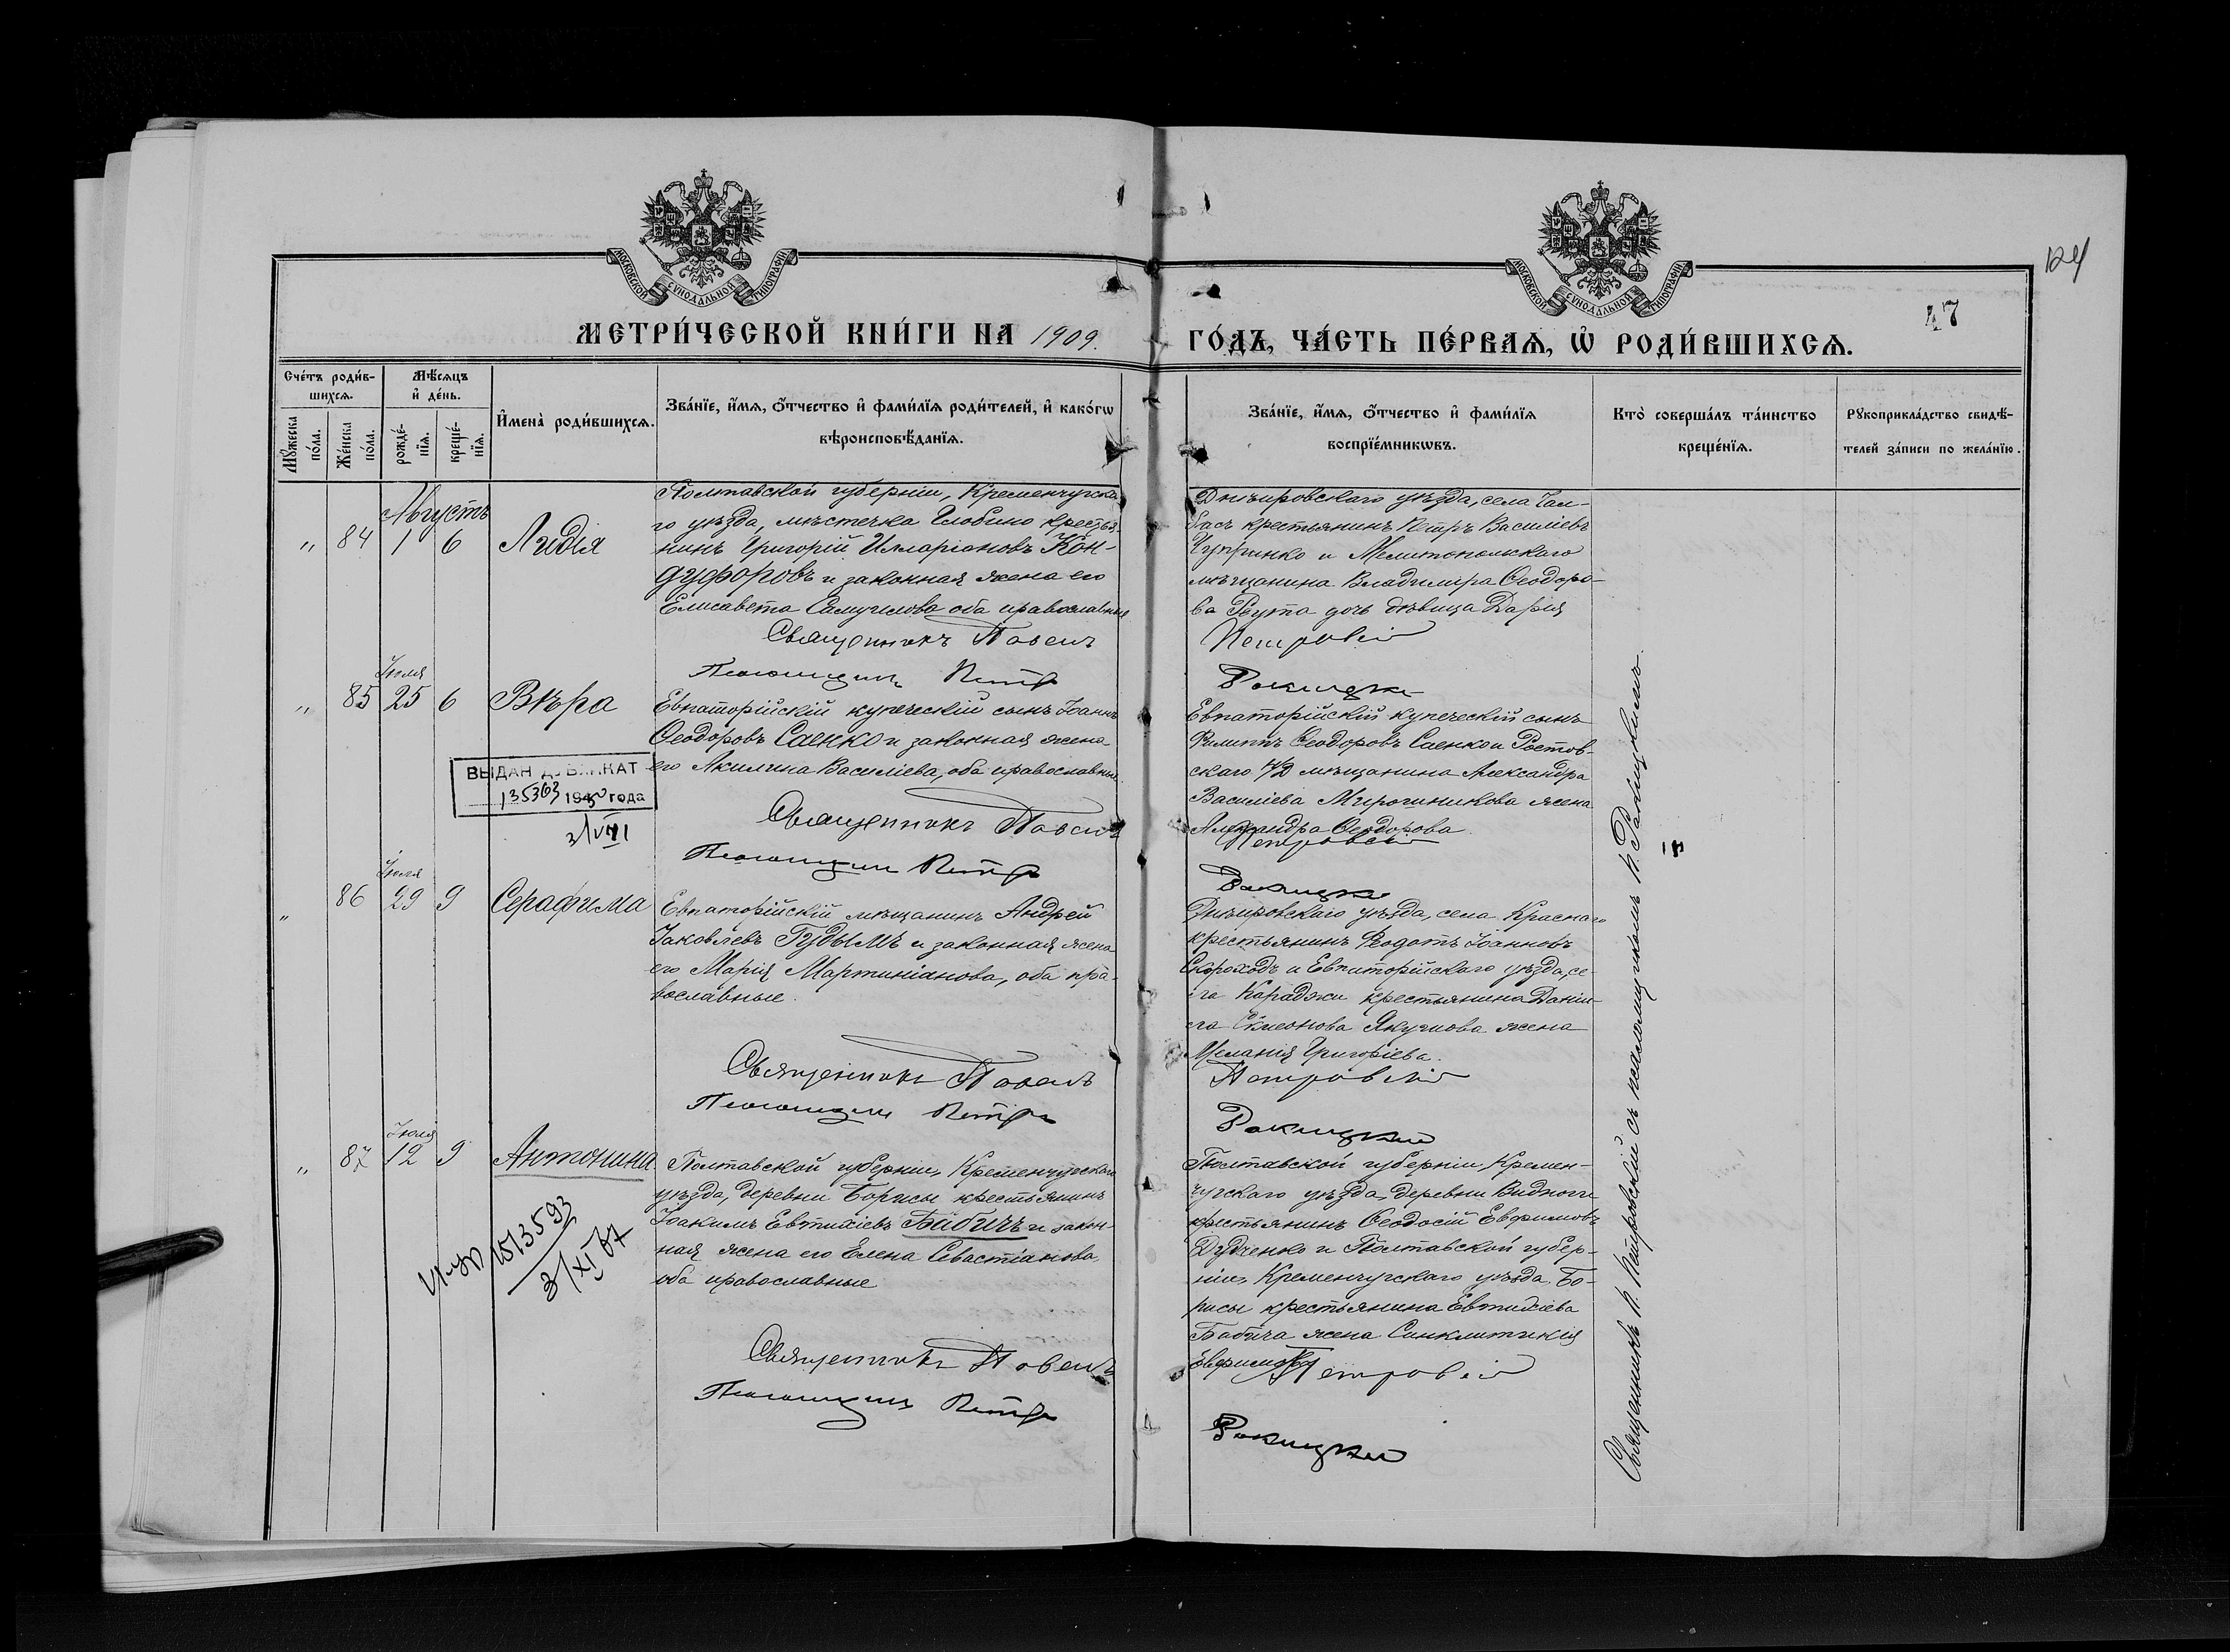 МОСКОВСКОЙ СУНОДАЛЬНОЙ ТИПОГРАФІИ
МОСКОВСКОЙ СУНОДАЛЬНОЙ ТИПОГРАФІИ
124
47
МЕТРИ́ЧЕСКОЙ КНИ́ГИ НА 1909. ГО́ДЪ, ЧА́СТЬ ПЕ́РВАѦ, Ѡ҆ РОДИ́ВШИХСѦ.
Сче́тъ роди́в-
шихсѧ.
Мѹ́жеска по́ла.
Же́нска по́ла.
Мѣ́сѧцъ
и҆ де́нь.
рожде́-
нїѧ.
креще́-
нїѧ.
И҆мена̀ роди́вшихсѧ.
Зва́нїе, и҆́мѧ, ѻ҆́тчество и҆ фами́лїѧ роди́телей, и҆ како́гѡ
вѣроисповѣ́данїѧ.
Зва́нїе, и҆́мѧ, ѻ҆́тчество и҆ фами́лїѧ
воспрїе́мникѡвъ.
Кто̀ соверша́лъ та́инство
креще́нїѧ.
Рꙋкоприкла́дство свидѣ́-
телей за́писи по жела́нїю.
Августъ
„ 84 1 6 Лидія
Полтавской губерніи, Кременчугска-
го уѣзда, мѣстечка Глобино крестья-
нинъ Григорій Илларіоновъ Кон-
дуфоровъ и законная жена его
Елисавета Самуилова оба православные
Священникъ Павелъ
Псаломщикъ Петръ
Днѣпровскаго уѣзда, села Чал-
басъ крестьянинъ Петръ Василіевъ
Чупринко и Мелитопольскаго
мѣщанина Владимира Ѳеодоро-
ва Реута дочь дѣвица Дарія
Петровскій
Рокицкій
Іюля
„ 85 25 6 Вѣра
Евпаторійскій купеческій сынъ Іоаннъ
Ѳеодоровъ Саенко и законная жена
его Акилина Василіева, оба православные
ВЫДАН ДУБЛИКАТ
135363 1950 года
2/VIII
Священникъ Павелъ
Псаломщикъ Петръ
Евпаторійскій купеческій сынъ
Филиппъ Ѳеодоровъ Саенко и Ростов-
скаго н/Д мѣщанина Александра
Василіева Мирошникова жена
Александра Ѳеодорова
Петровскій
Рокицкій
Іюля
„ 86 29 9 Серафима
Евпаторійскій мѣщанинъ Андрей
Іаковлевъ Гудымъ и законная жена
его Марія Мартиніанова, оба пра-
вославные.
Священникъ Павелъ
Псаломщикъ Петръ
Днѣпровскаго уѣзда, села Краснаго
крестьянинъ Ѳеодотъ Іоанновъ
Скороходъ и Евпаторійскаго уѣзда, се-
ла Караджи крестьянина Даніи-
ла Симеонова Якушова жена
Меланія Григоріева.
Петровскій
Рокицкій
Іюля
„ 87 12 9 Антонина
Полтавской губерніи, Кременчугскаго
уѣзда, деревни Борисы крестьянинъ
Іоакимъ Евтихіевъ Бабичъ и закон-
ная жена его Елена Севастіанова,
оба православные
1513593
3/XI 67
Священникъ Павелъ
Псаломщикъ Петръ
Полтавской губерніи, Кремен-
чугскаго уѣзда, деревни
крестьянинъ Ѳеодосій Евфимовъ
Дудченко и Полтавской губер-
ніи, Кременчугскаго уѣзда, Бо-
рисы крестьянина Евтихіева
Бабича жена Синклитикія
Евфимова
Петровскій
Рокицкій
Священникъ П. Петровскій съ псаломщикомъ П. Рокицкимъ.